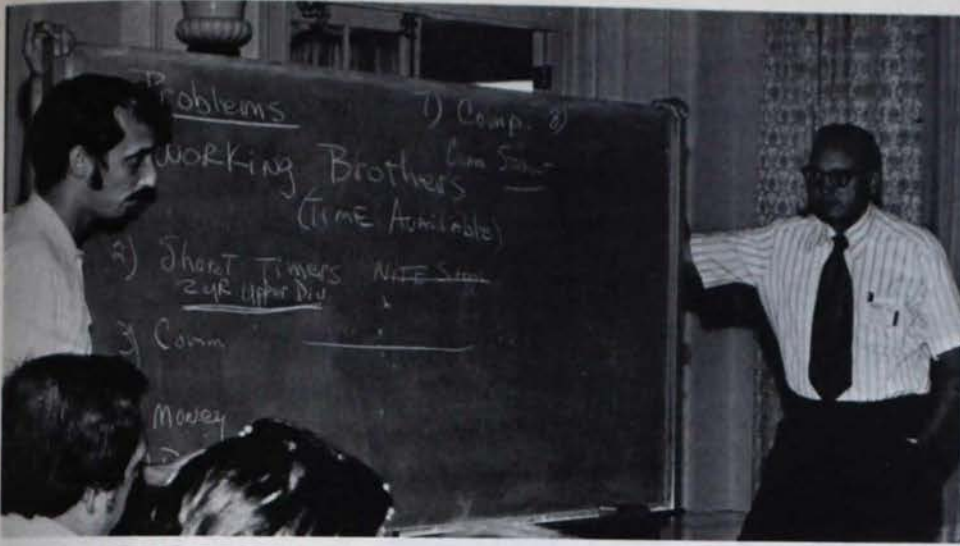 Problems
1) Comp.
WORKING Brothers
(TIME Available)
2) Short Timers NITE School
2 YR Upper Div
3) Comm
Money